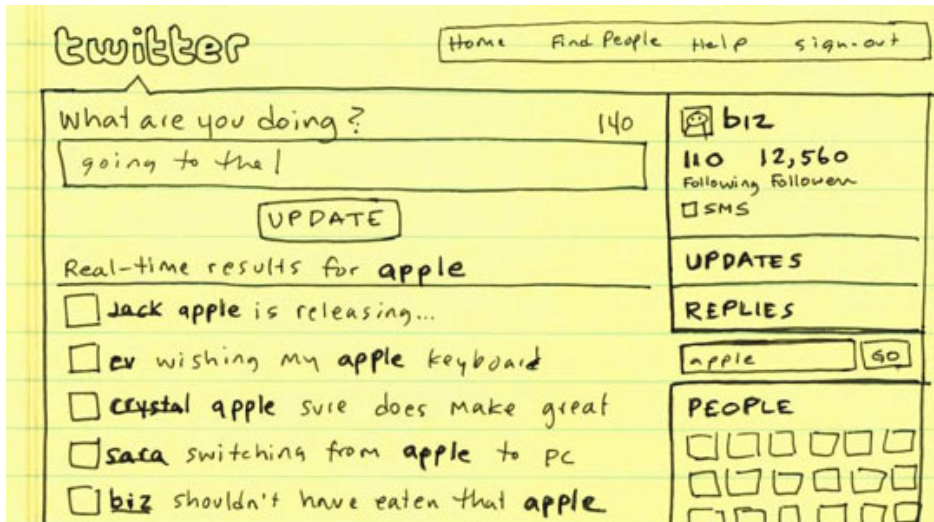 twitter
Home Find People Help sign-out
What are you doing? 140
going to the
UPDATE
Real-time results for apple
Jack apple is releasing...
ev wishing my apple keyboard
crystal apple sure does make great
sara switching from apple to pc
biz shouldn't have eaten that apple
biz
110 12,560
Following Followers
SMS
UPDATES
REPLIES
apple GO
PEOPLE